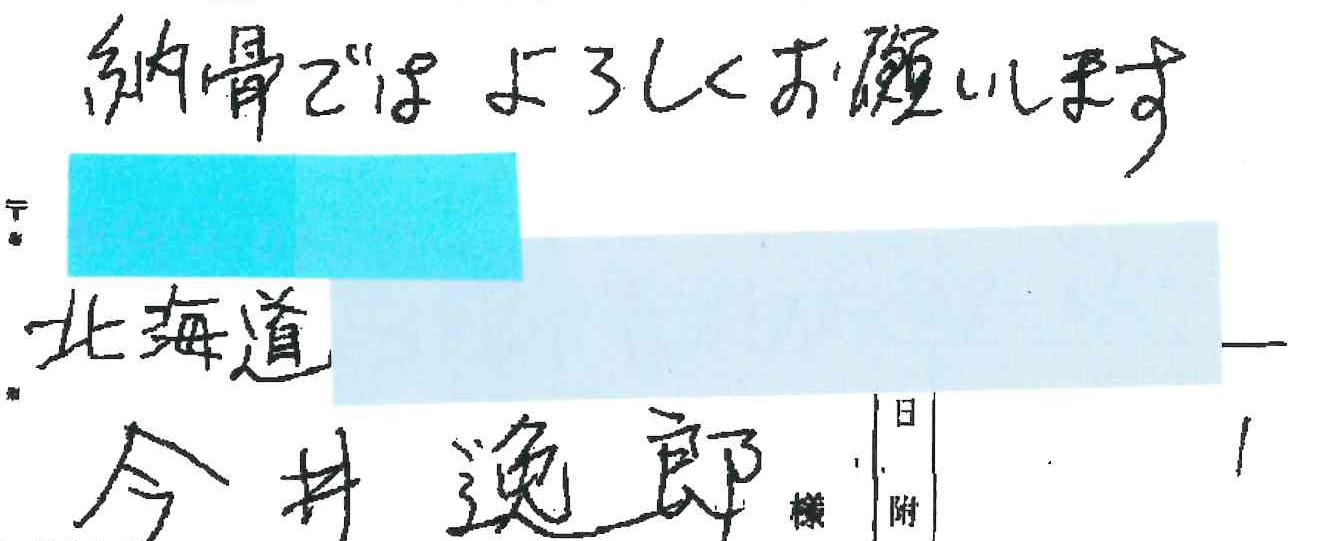 納骨ではよろしくお願いします
〒
北海道
今井逸郎様
日附